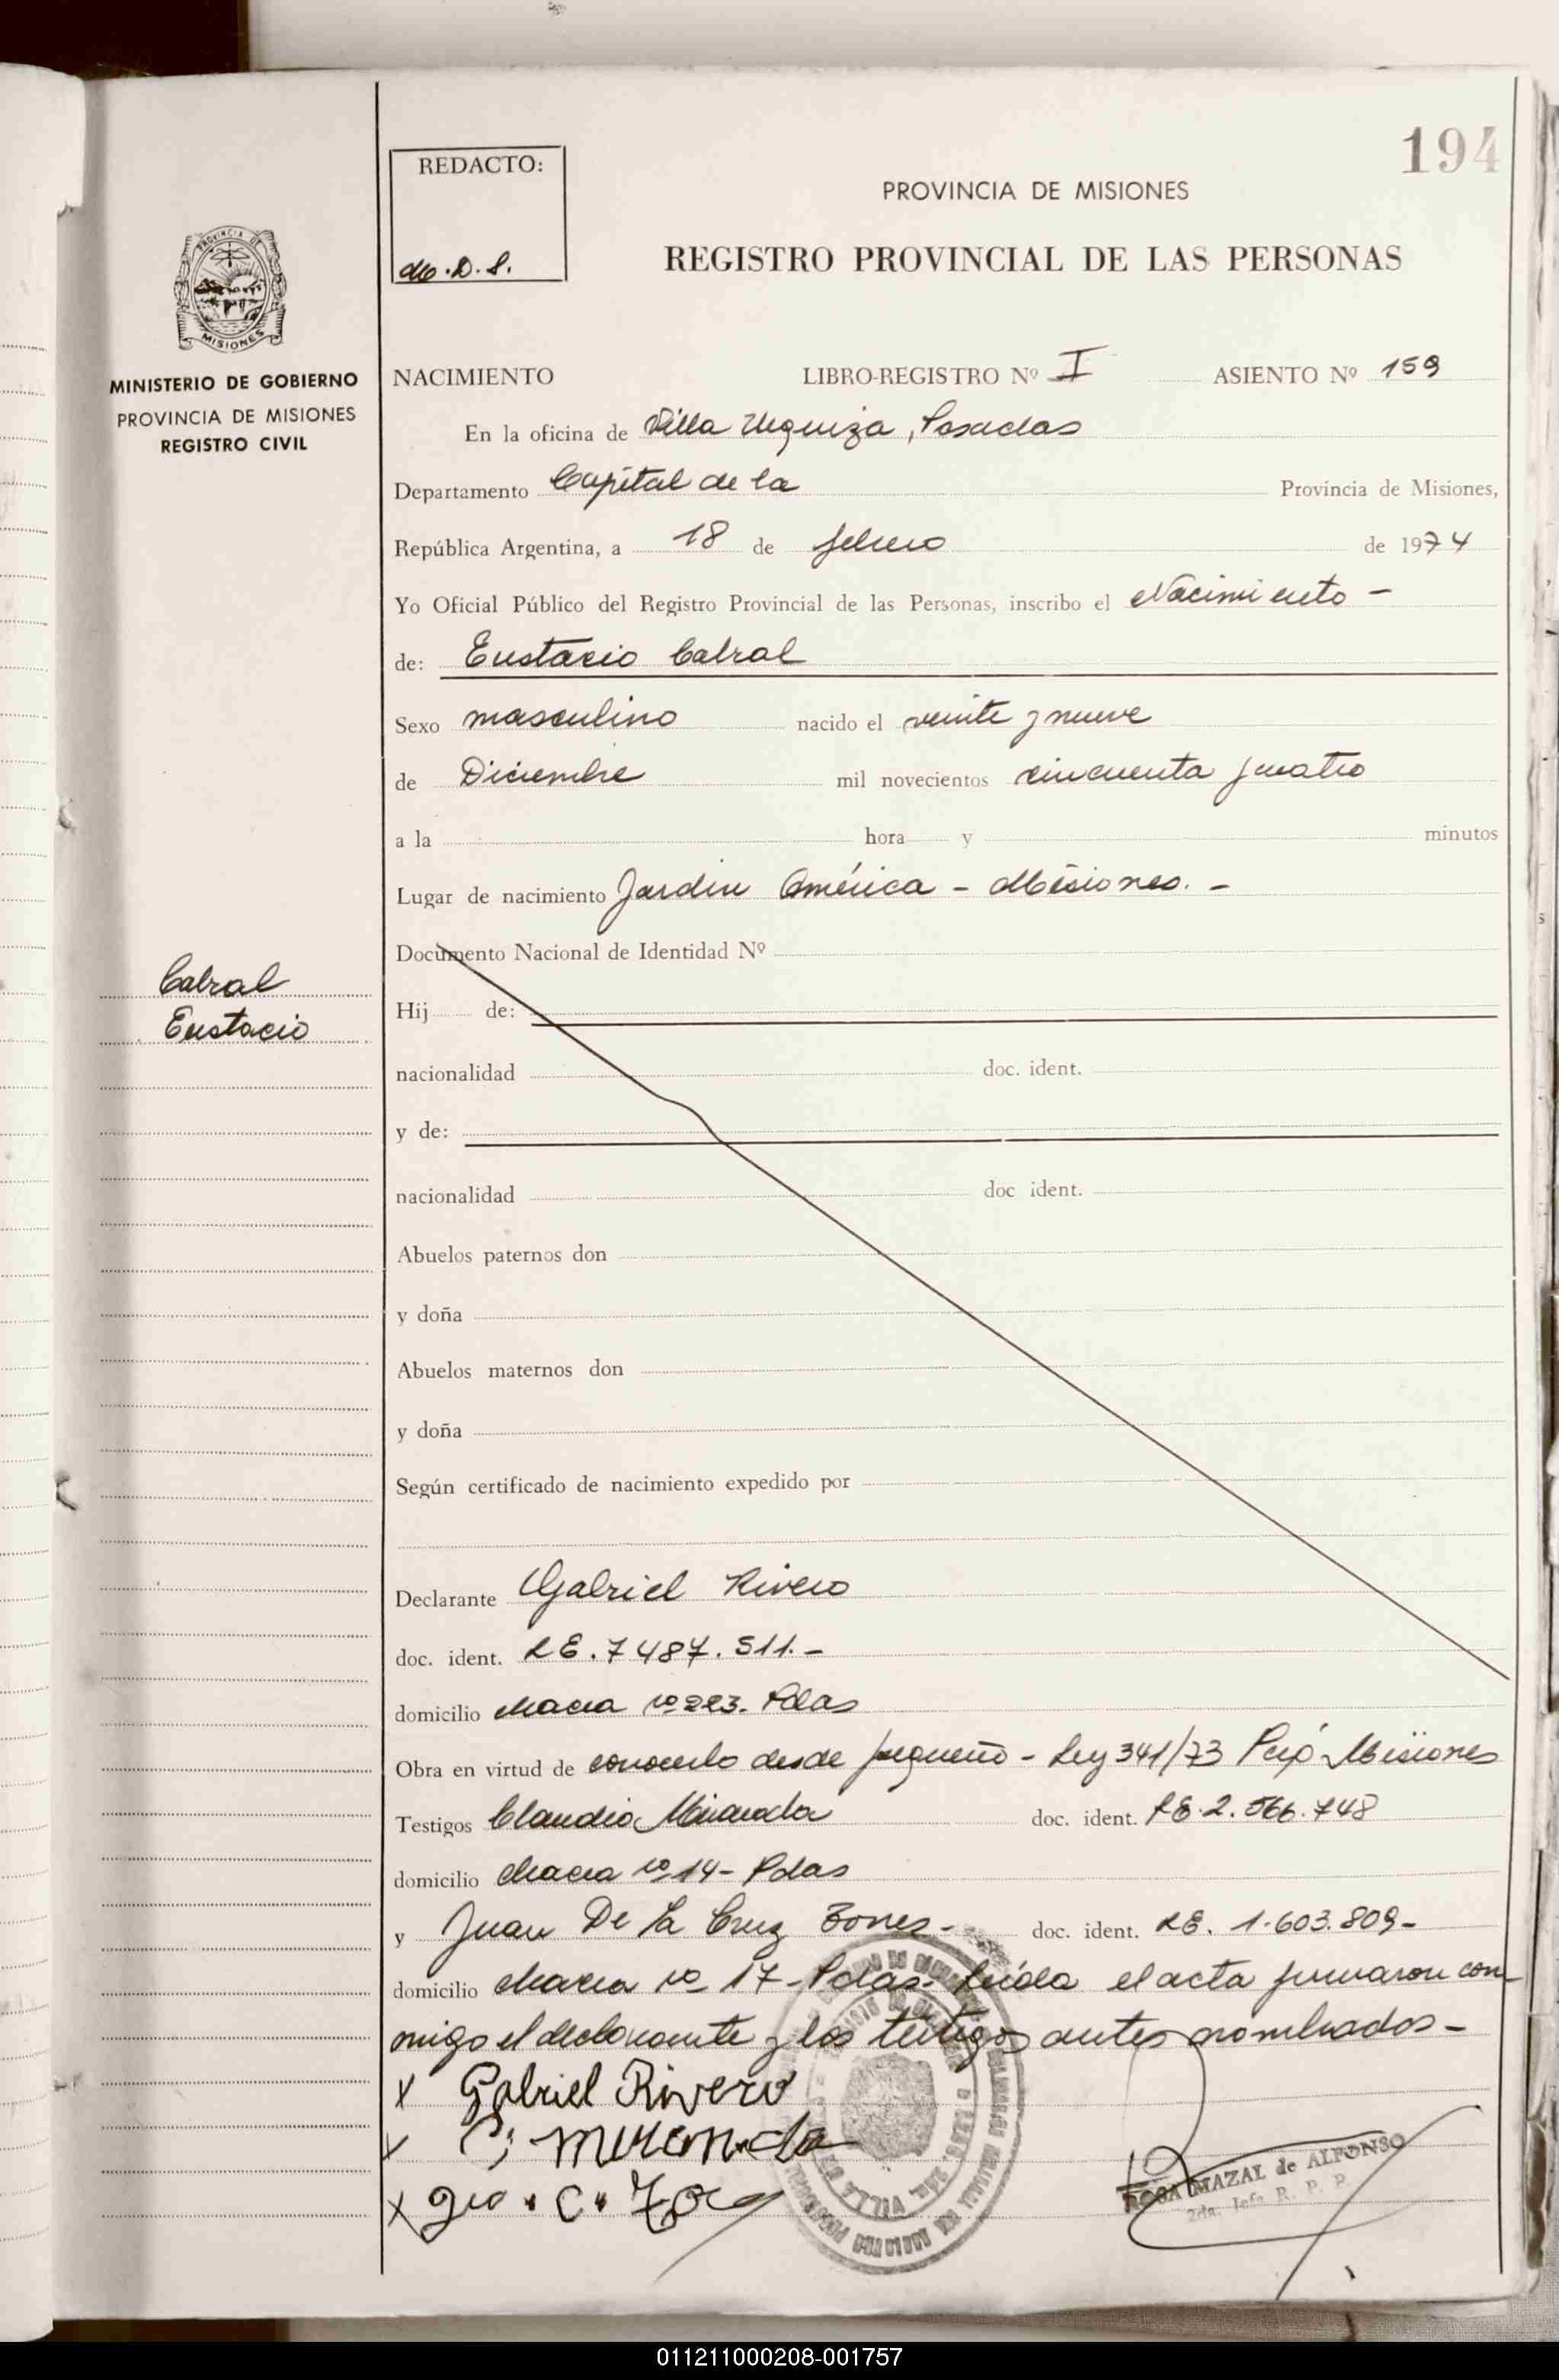 194
REDACTO:
PROVINCIA DE MISIONES
REGISTRO PROVINCIAL DE LAS PERSONAS
PROVINCIA DE
MISIONES
MINISTERIO DE GOBIERNO
PROVINCIA DE MISIONES
REGISTRO CIVIL
NACIMIENTO LIBRO-REGISTRO Nº I ASIENTO Nº 159
En la oficina de Villa Urquiza, Posadas
Departamento Capital de la Provincia de Misiones,
República Argentina, a 18 de febrero de 1974
Yo Oficial Público del Registro Provincial de las Personas, inscribo el Nacimiento -
de: Eustacio Cabral
Sexo masculino nacido el veinte y nueve
de Diciembre mil novecientos cincuenta y cuatro
a la hora y minutos
Lugar de nacimiento Jardin América - Misiones. -
Documento Nacional de Identidad Nº
Cabral
Eustacio
Hij de:
nacionalidad doc. ident.
y de:
nacionalidad doc ident.
Abuelos paternos don
y doña
Abuelos maternos don
y doña
Según certificado de nacimiento expedido por
Declarante Gabriel Rivero
doc. ident. LE. 7487.511.-
domicilio chacra nº 223. Pdas
Obra en virtud de conocerlo desde pequeño - Ley 341/73 Misiones
Testigos Claudio Miranda doc. ident. LE. 2.566.748
domicilio chacra nº 14 - Pdas
y Juan De La Cruz doc. ident. LE. 1.603.809-
domicilio chacra nº 17 - Pdas- Leída el acta firmaron con-
migo el declarante y los testigos antes nombrados -
x Gabriel Rivero
x C. Miranda
ROSA MAZAL de ALFONSO
2da. Jefe R. P. P.
011211000208-001757